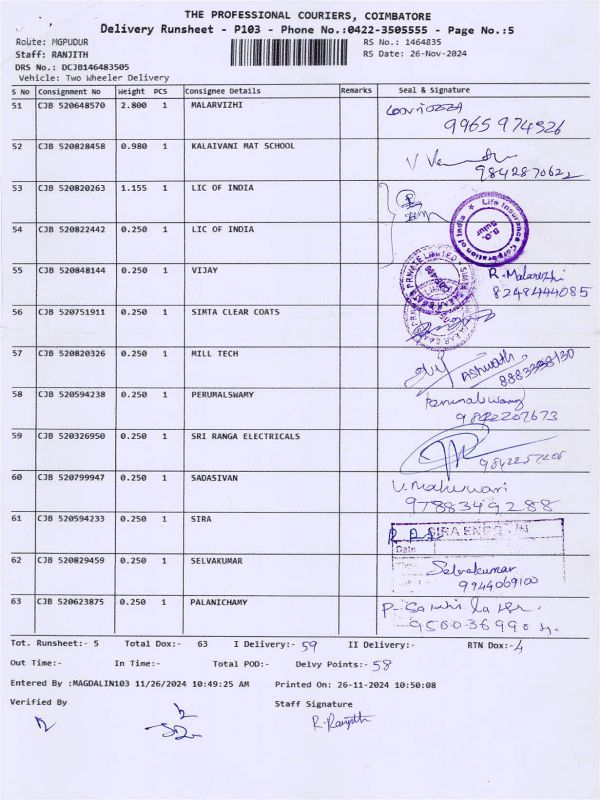 THE PROFESSIONAL COURIERS, COIMBATORE
Delivery Runsheet - P103 - Phone No.:0422-3505555 - Page No.:5
Route: MGPUDUR
RS No.: 1464835
Staff: RANJITH
RS Date: 26-Nov-2024
DRS No.: DCJB146483505
Vehicle: Two Wheeler Delivery
S No Consignment No Weight PCS Consignee Details Remarks Seal & Signature
51 CJB 520648570 2.800 1 MALARVIZHI
9965974526
52 CJB 520828458 0.980 1 KALAIVANI MAT SCHOOL
9842870622
53 CJB 520820263 1.155 1 LIC OF INDIA
Life Insurance Corporation of India
B.O. Sulur
54 CJB 520822442 0.250 1 LIC OF INDIA
55 CJB 520848144 0.250 1 VIJAY
R. Malarvizhi
8248444085
56 CJB 520751911 0.250 1 SIMTA CLEAR COATS
57 CJB 520820326 0.250 1 MILL TECH
Ashwath
58 CJB 520594238 0.250 1 PERUMALSWAMY
Perumal Swamy
9842207673
59 CJB 520326950 0.250 1 SRI RANGA ELECTRICALS
60 CJB 520799947 0.250 1 SADASIVAN
V. Maheswari
9788349288
61 CJB 520594233 0.250 1 SIRA
SIRA
Date
62 CJB 520829459 0.250 1 SELVAKUMAR
Selvakumar
9944069100
63 CJB 520623875 0.250 1 PALANICHAMY
Tot. Runsheet:- 5 Total Dox:- 63 I Delivery:- 59 II Delivery:- RTN Dox:- 4
Out Time:- In Time:- Total POD:- Delvy Points:- 58
Entered By :MAGDALIN103 11/26/2024 10:49:25 AM Printed On: 26-11-2024 10:50:08
Verified By
Staff Signature
R. Ranjith